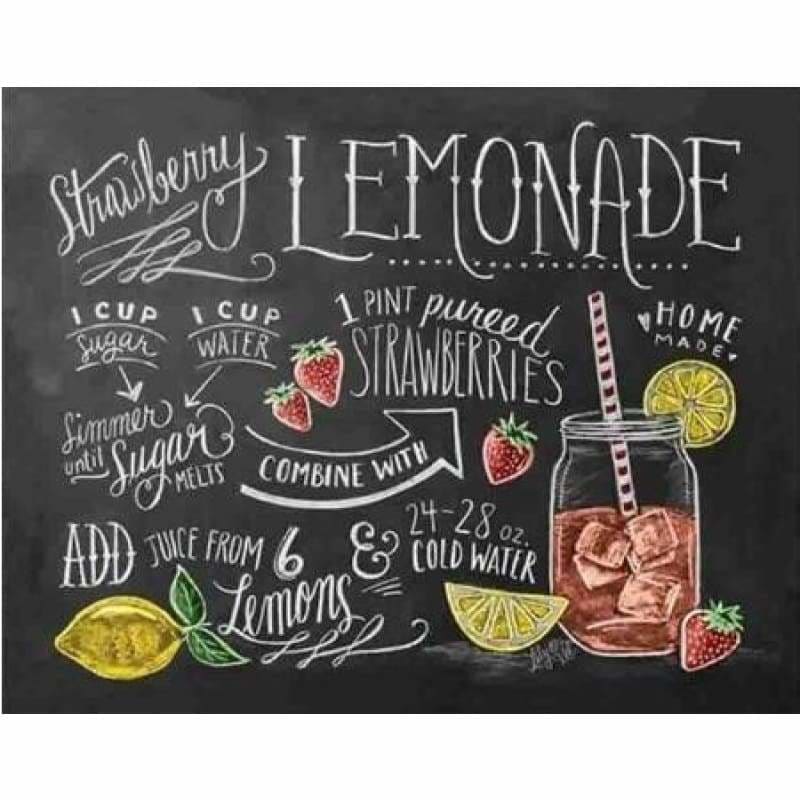 Strawberry LEMONADE
1 CUP Sugar
1 CUP WATER
Simmer until Sugar MELTS
COMBINE WITH
1 PINT pureed STRAWBERRIES
HOME MADE
ADD JUICE FROM 6 Lemons
& 24-28 oz. COLD WATER